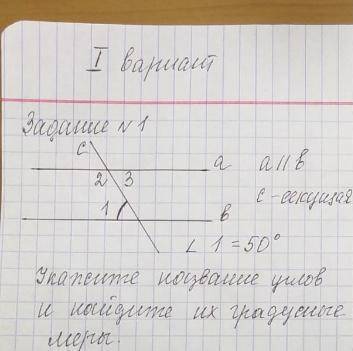 I вариант
Задание №1
c
a a || в
2 3
c - секущая
1
в
∠ 1 = 50°
Укажите название углов
и найдите их градусные
меры.